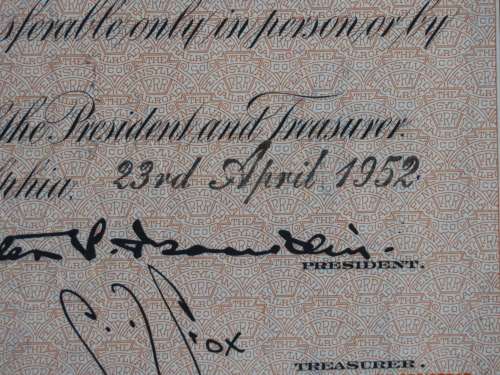 sferable only in person, or by
the President and Treasurer.
phia, 23rd April 1952
P. Franklin.
PRESIDENT.
Fox
TREASURER.